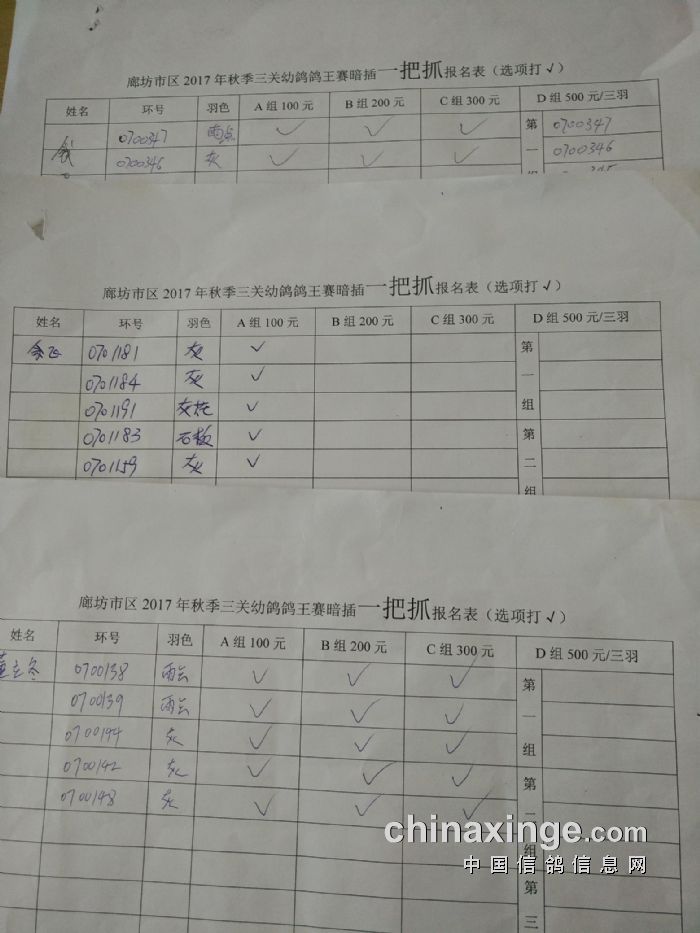 廊坊市区 2017 年秋季三关幼鸽鸽王赛暗插一把抓报名表（选项打√）
姓名 环号 羽色 A 组 100 元 B 组 200 元 C 组 300 元 D 组 500 元/三羽
0700347 雨点 ✓ ✓ ✓ 第 0700347
0700346 灰 ✓ ✓ ✓ 一 0700346
廊坊市区 2017 年秋季三关幼鸽鸽王赛暗插一把抓报名表（选项打√）
姓名 环号 羽色 A 组 100 元 B 组 200 元 C 组 300 元 D 组 500 元/三羽
0701181 灰 ✓ 第
0701184 灰 ✓ 一
0701191 灰花 ✓ 组
0701183 石板 ✓ 第
0701159 灰 ✓ 二
组
廊坊市区 2017 年秋季三关幼鸽鸽王赛暗插一把抓报名表（选项打√）
姓名 环号 羽色 A 组 100 元 B 组 200 元 C 组 300 元 D 组 500 元/三羽
0700138 雨点 ✓ ✓ ✓ 第
0700139 雨点 ✓ ✓ ✓ 一
0700144 灰 ✓ ✓ ✓ 组
0700142 灰 ✓ ✓ ✓ 第
0700148 灰 ✓ ✓ ✓ 二
组
第
三
chinaxinge.com
中国信鸽信息网